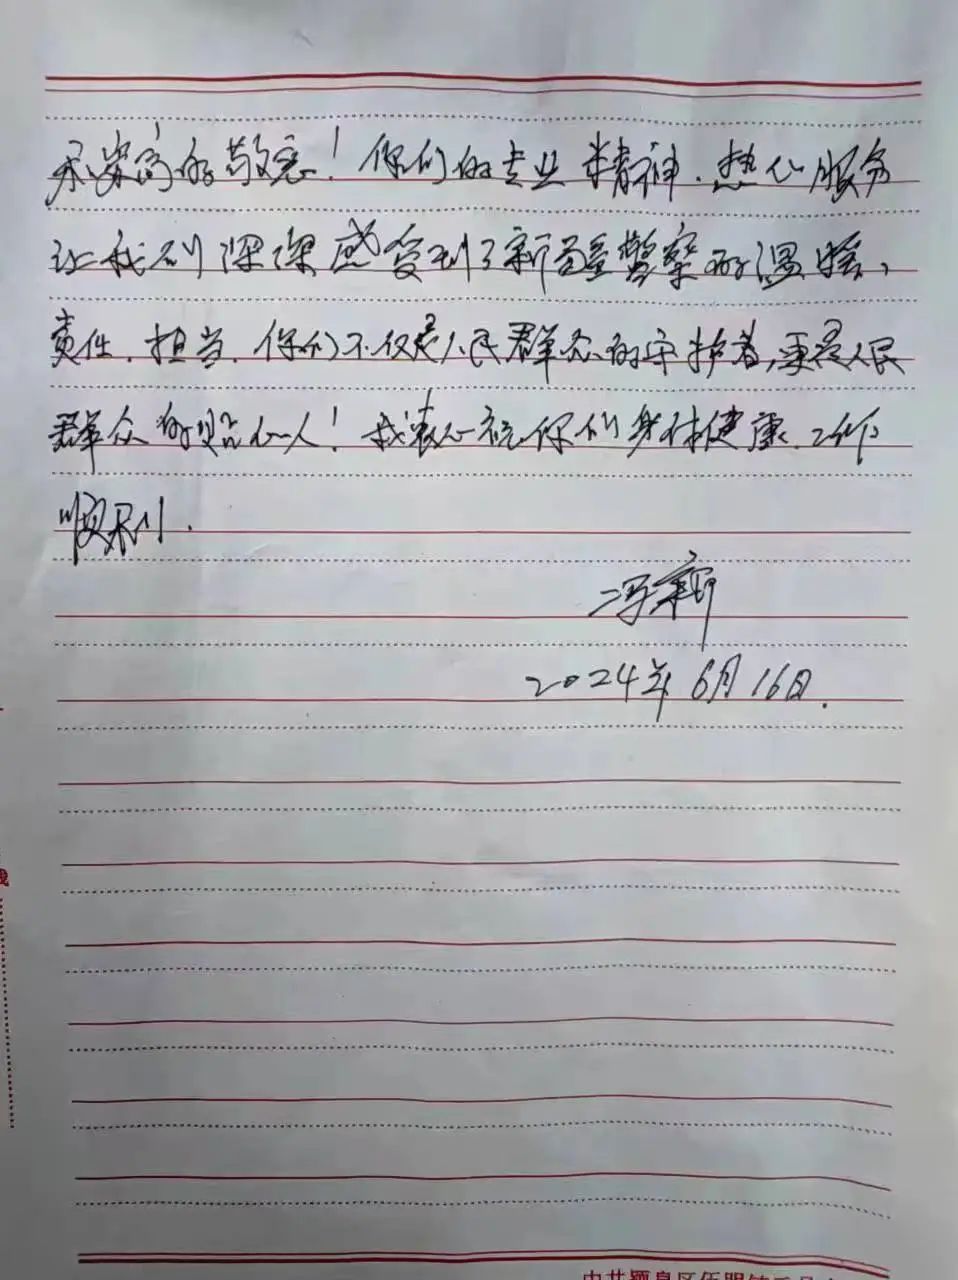 示崇高的敬意！你们的专业精神、热心服务
让我们深深感受到了新疆警察的温暖、
责任、担当、你们不仅是人民群众的守护者，更是人民
群众的贴心人！我衷心祝你们身体健康、工作
顺利。
冯新
2024年6月16日.
中共颍泉区伍明镇